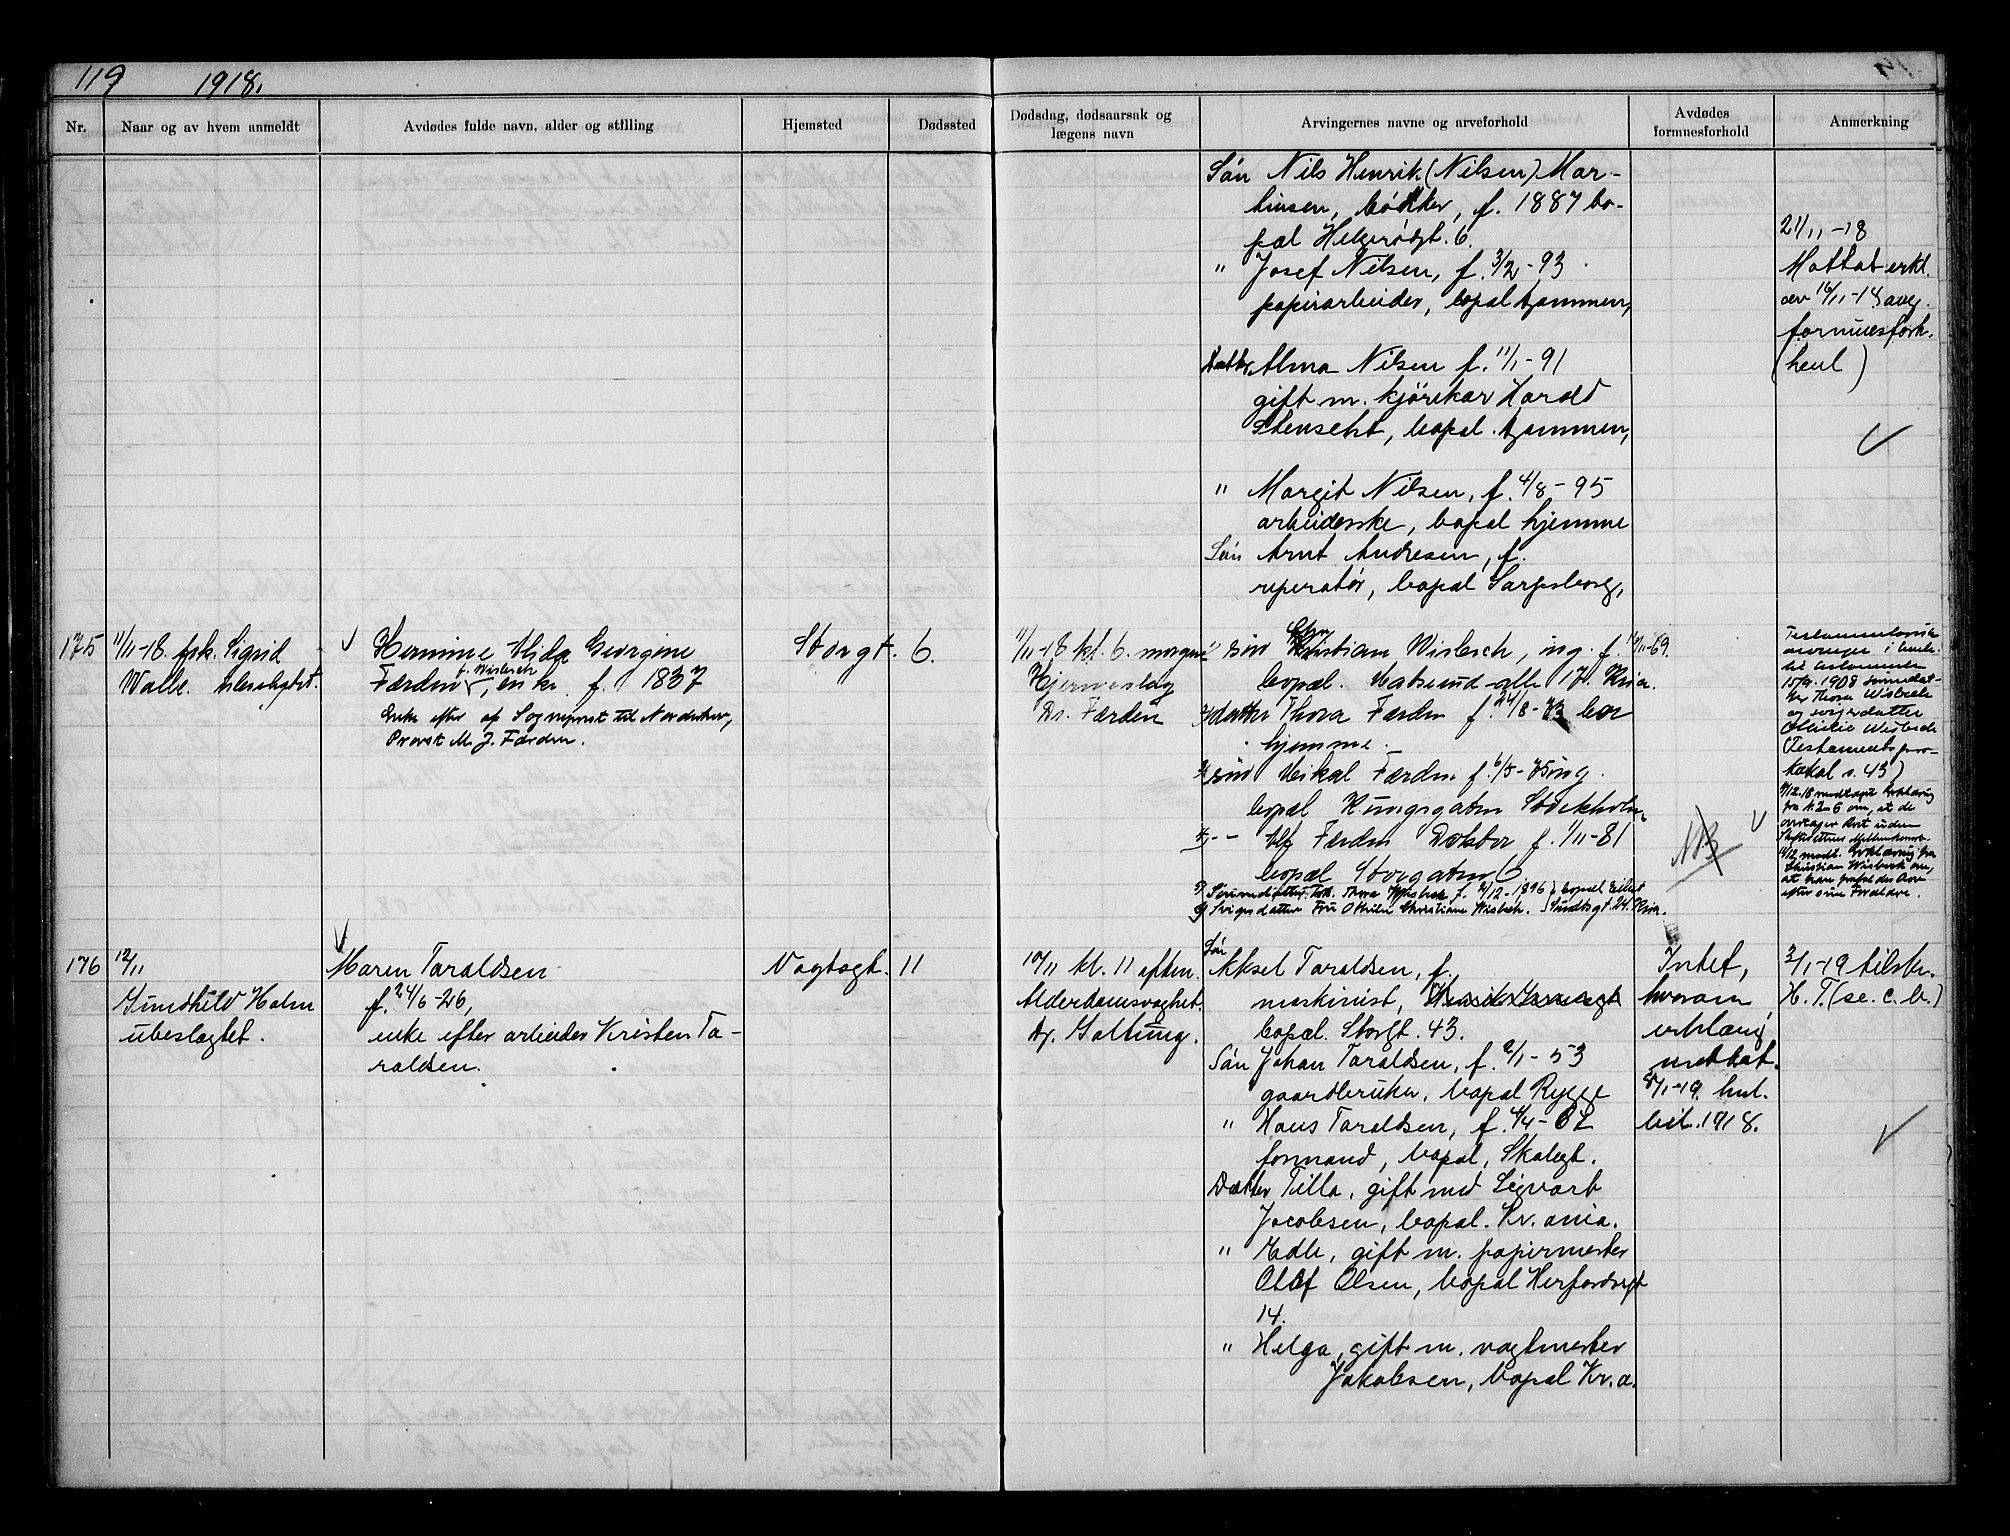 119 1918.
Nr.
Naar og av hvem anmeldt
Avdødes fulde navn, alder og stilling
Hjemsted
Dødssted
Dødsdag, dødsaarsak og
lægens navn
Arvingernes navne og arveforhold
Avdødes
formuesforhold
Anmerkning
Søn Nils Henrik (Nilsen) Mar-
tinsen, bødker, f. 1887 bo-
pæl Helgerødgt. 6.
" Josef Nilsen, f. 3/2-93
papirarbeider, bopæl hjemmen,
Datter Alma Nilsen f. 11/1-91
gift m. kjørekar Harald
Stenseht, bopæl hjemmen,
" Margit Nilsen, f. 4/8-95
arbeiderske, bopæl hjemme
Søn Arnt Andresen, f.
reperatør, bopæl Sarpsborg,
21/11-18
Mottat erkl.
av 16/11-18 ang.
formuesforh.
(heul)
175
11/11-18. frk. Sigrid
Walle. ubeslegtet.
Hermine Alida Georgine
f. Wisbech
Færden, enke f. 1837
Enke efter af Sogneprest til Norderhov,
Provst M. J. Færden.
Storgt. 6.
11/11-18 kl. 6. morgen
Hjerneslag
Dr. Færden
1/ søn Chr Kristian Wisbech, ing. f. 16/11-69.
bopæl. Matsund-alle 17. Kria.
2/ datter Thora Færden f. 24/8-73 bor
hjemme.
3/ søn Mikal Færden f. 6/5-75 ing.
bopæl Kungsgaten Stockholm
4/ - - Alf Færden Doktor f. 1/11-81
bopæl Storgaten 6
5/ Sønnedatter Frk. Thora Wisbech f. 2/12-1896 } bopæl Eilert
6/ Svigerdatter Fru Othilie Christiane Wisbech. } Sundtsgt. 24. Kria.
NB
Testamentarisk
arvinger i henh.
til testamente
15/9. 1908 sønnedat-
ter Thora Wisbech
og svigerdatter
Othilie Wisbech
(Testamentspro-
tokol s. 43)
9/12.18 modtaget Erklæring
fra N. 2-6 om, at de
overtager Arv uden
Skifterettens Mellemkomst
14/12 modt. Erklæring fra
Christian Wisbech om,
at han frafaldes Arv
efter sine Forældre.
176
12/11
Gundhild Holm
ubeslegtet.
Maren Taraldsen
f. 24/6-26,
enke efter arbeider Kristen Ta-
raldsen.
Vogtsgt. 11
10/11 kl. 11 aften.
Alderdomsvaghet.
Dr. Galtung.
Søn Aksel Taraldsen, f.
maskinist,
bopæl. Storgt. 43.
Søn Johan Taraldsen, f. 2/1-53
gaardbruker, bopæl Rygge
" Hans Taraldsen, f. 4/4-62
formand, bopæl, Skolegt.
Datter Tilla, gift med Sigvart
Jacobsen, bopæl. Kr.ania.
" Edle, gift m. papirmester
Olaf Olsen, bopæl Herfordsgt
14.
" Helga, gift m. vagtmester
Jakobsen, bopæl Kr.a.
Intet,
hvorom
erklæring
mottat.
8/1-19. hul.
bil. 1918.
3/1-19 tilskr.
H. T. (se. c. b.)